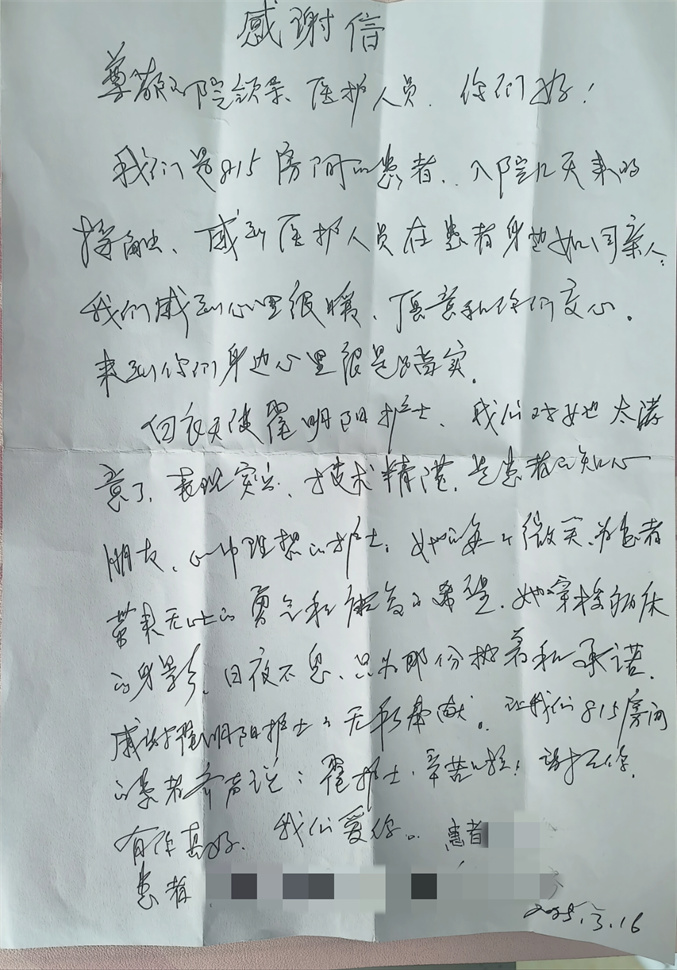 感谢信
尊敬的院领导、医护人员、你们好!
我们是815房间的患者、入院几天来的
接触、感到医护人员在患者身边如同亲人;
我们感到心里很暖、愿意和你们交心。
来到你们身边心里很是踏实。
白衣天使翟明阳护士、我们对她太满
意了、表现突出、技术精湛、是患者的知心
朋友、心中理想的护士;她的每个微笑、为患者
带来无比的勇气和康复的希望、她穿梭病床
的身影、日夜不息、只为那份执着和承诺。
感谢翟明阳护士的无私奉献。让我们815房间
的患者齐声说:翟护士、辛苦啦!谢谢你、
有你真好、我们爱你。 患者
患者
2025.3.16